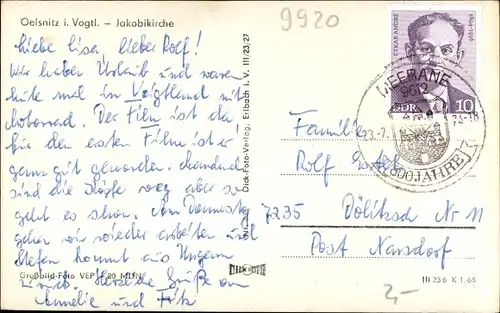 Oelsnitz i. Vogtl. – Jakobikirche
9920
Liebe Lisa, lieber Rolf!
Wir haben Urlaub und waren
heute mal im Vogtland mit
Motorrad. Der Film ist da
für den ersten Film ist er
ganz gut geworden,
sind die Köpfe weg aber so
geht es schon. Am Donnerstag
gehen wir wieder arbeiten und
Steffen kommt aus Ungarn
zurück. Herzliche Grüße von
Annelie und Fritz
Großbild-Foto VEP 20 MDN
Dick-Foto-Verlag, Erlbach i. V. III/23/27
ETKAR ANDRÉ
1894-1936
DDR
10
MEERANE
9612
23.7.
74-18
800 JAHRE
Familie
Rolf
7235 Dölitzsch Nr 11
Post Narsdorf
III 23 6 K 1,65
2,-